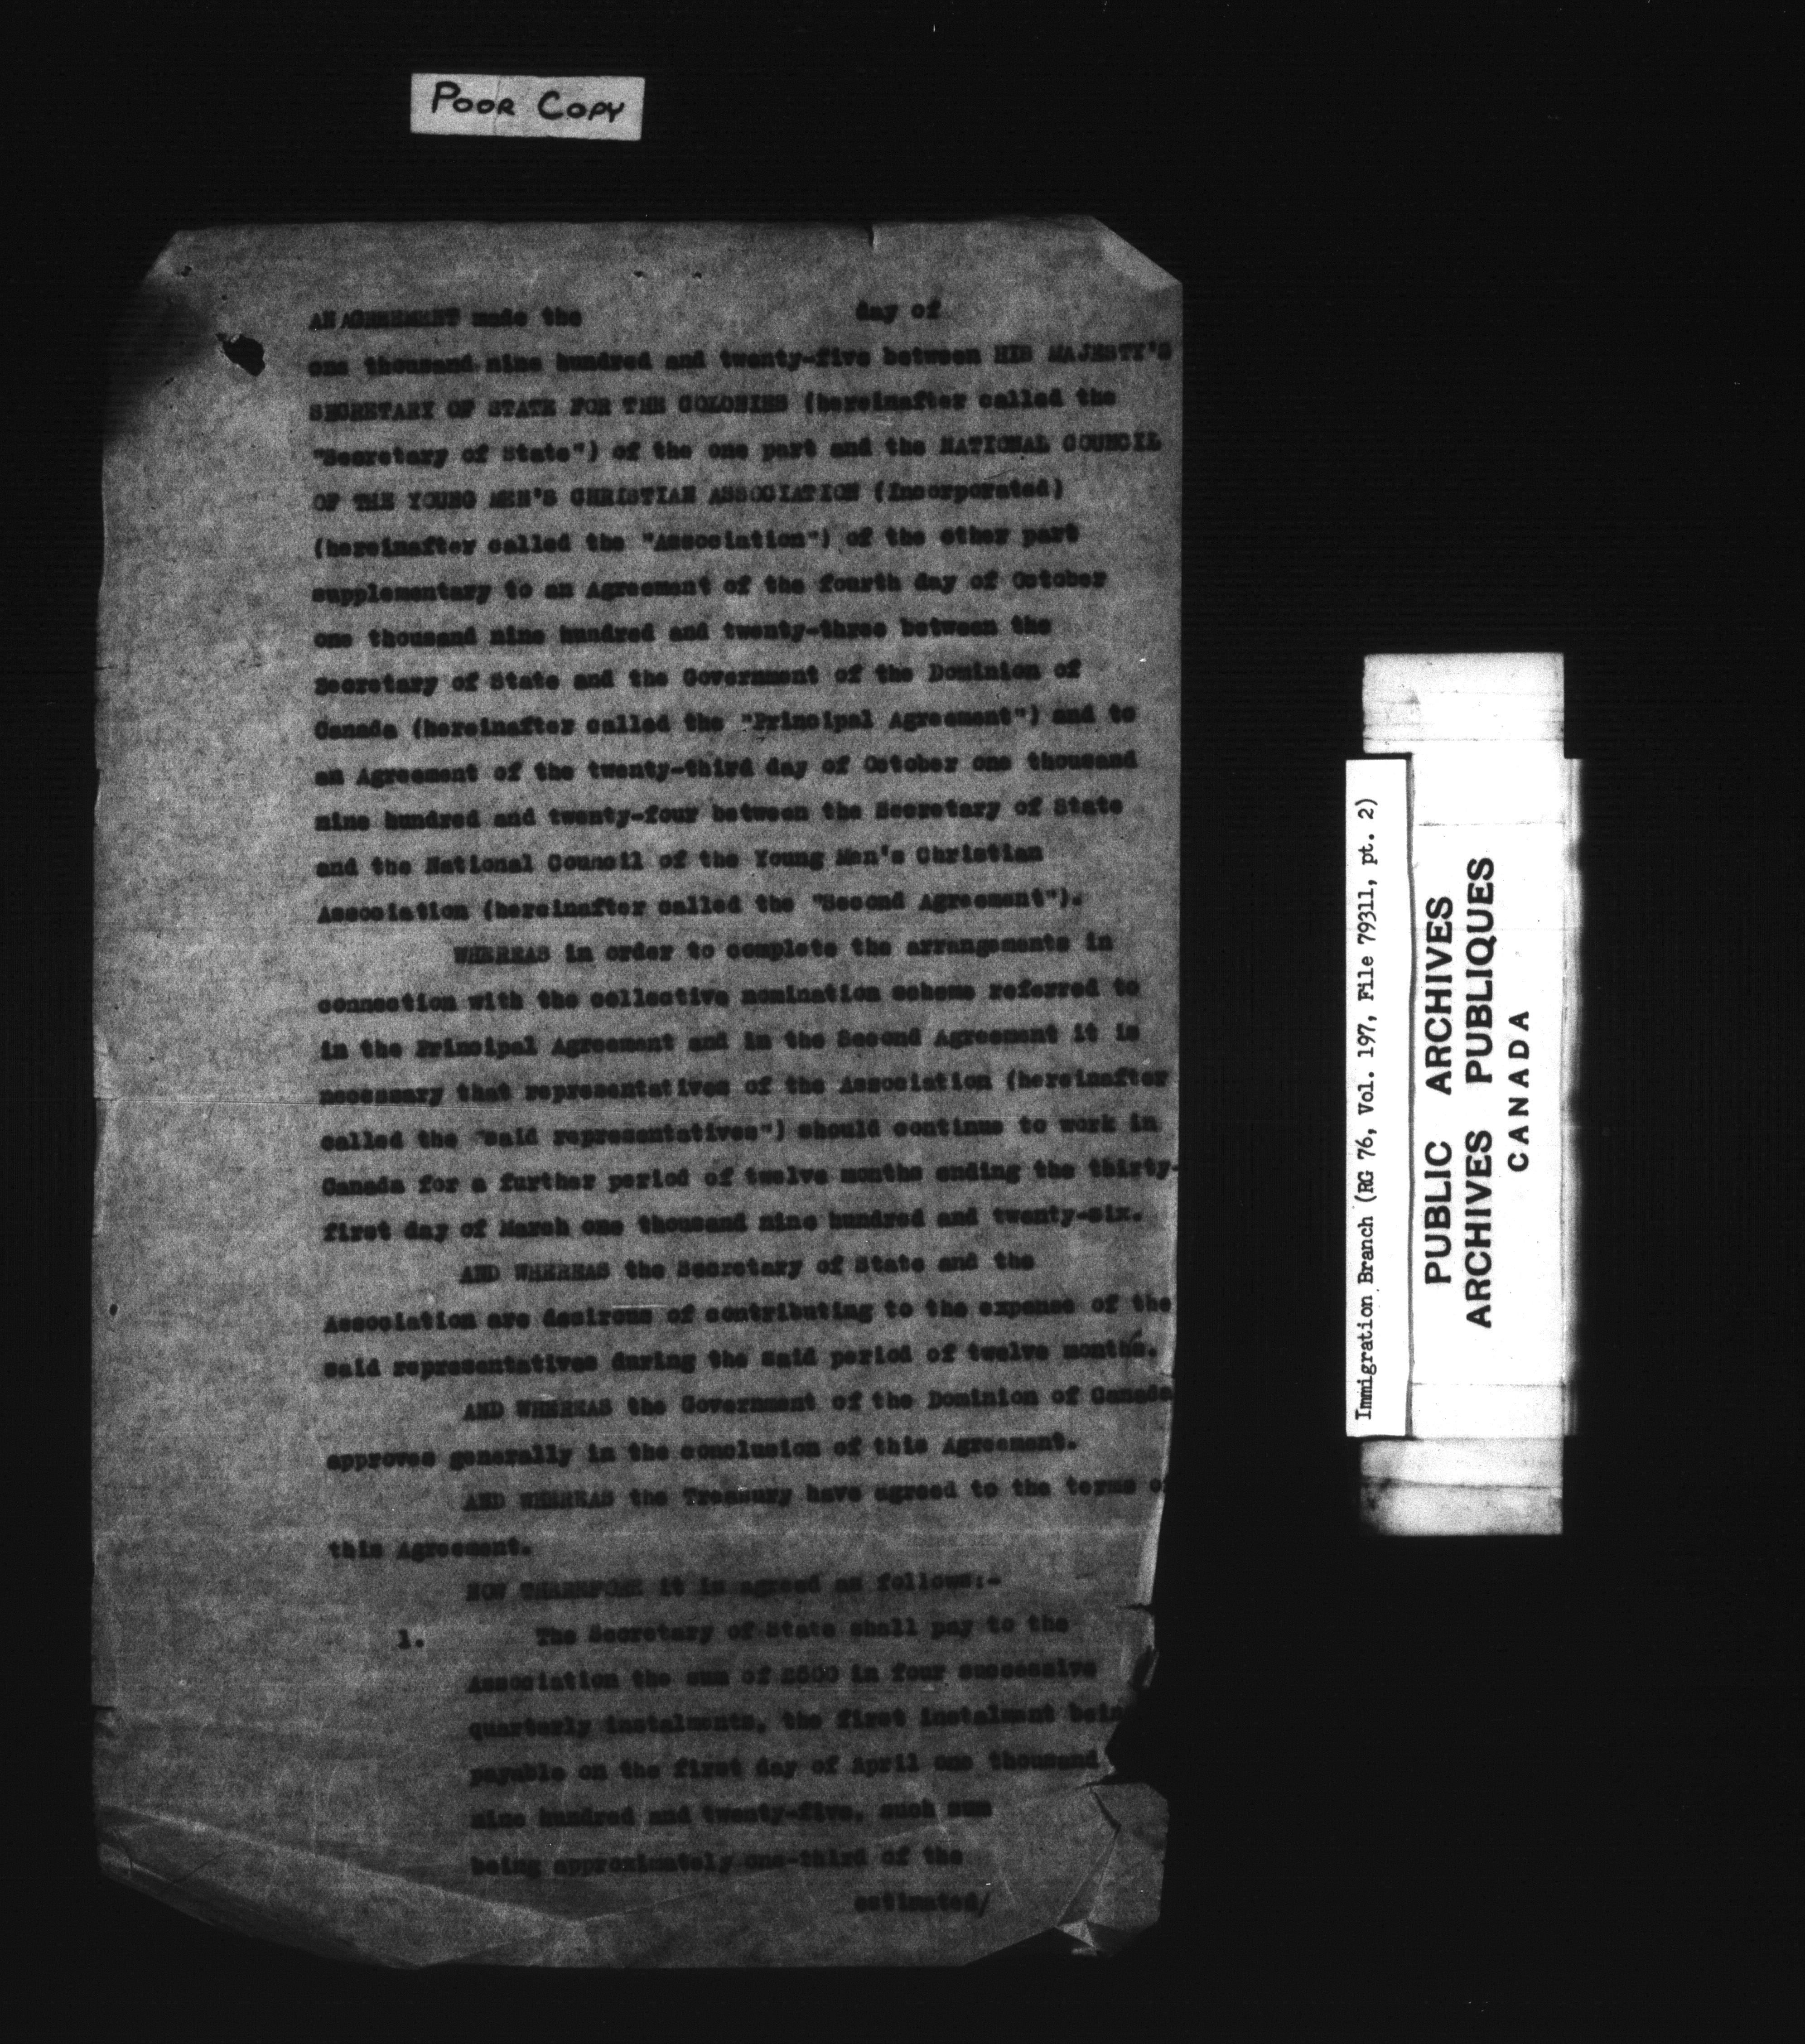 POOR COPY
AN AGREEMENT made the day of
one thousand nine hundred and twenty-five between HIS MAJESTY'S
SECRETARY OF STATE FOR THE COLONIES (hereinafter called the
"Secretary of State") of the one part and the NATIONAL COUNCIL
OF THE YOUNG MEN'S CHRISTIAN ASSOCIATION (Incorporated)
(hereinafter called the "Association") of the other part
supplementary to an Agreement of the fourth day of October
one thousand nine hundred and twenty-three between the
Secretary of State and the Government of the Dominion of
Canada (hereinafter called the "Principal Agreement") and to
an Agreement of the twenty-third day of October one thousand
nine hundred and twenty-four between the Secretary of State
and the National Council of the Young Men's Christian
Association (hereinafter called the "Second Agreement").
WHEREAS in order to complete the arrangements in
connection with the collective nomination scheme referred to
in the Principal Agreement and in the Second Agreement it is
necessary that representatives of the Association (hereinafter
called the "said representatives") should continue to work in
Canada for a further period of twelve months ending the thirty-
first day of March one thousand nine hundred and twenty-six.
AND WHEREAS the Secretary of State and the
Association are desirous of contributing to the expense of the
said representatives during the said period of twelve months.
AND WHEREAS the Government of the Dominion of Canada
approves generally in the conclusion of this Agreement.
AND WHEREAS the Treasury have agreed to the terms of
this Agreement.
NOW THEREFORE it is agreed as follows:-
1. The Secretary of State shall pay to the
Association the sum of £500 in four successive
quarterly instalments, the first instalment bein
payable on the first day of April one thousand
nine hundred and twenty-five, such sum
being approximately one-third of the
estimated/
Immigration Branch (RG 76, Vol. 197, File 79311, pt. 2)
PUBLIC ARCHIVES
ARCHIVES PUBLIQUES
CANADA